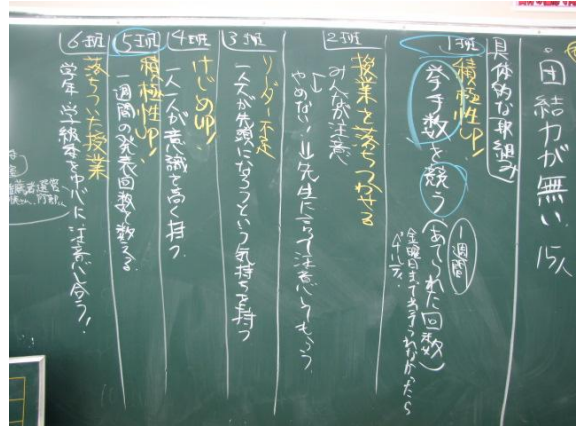 ・団結力が無い 15人
具体的な取組み
1班
積極性UP!
挙手数を競う(あてられた回数)
1週間
金曜日まであてられなかったら
ペナルティ
2班
授業を落ちつかせる
みんなが注意
↓
やめない!→先生に言って注意してもらう。
3班
リーダー不足
一人一人が先頭になろうという気持ちを持つ
4班
けじめUP!
一人一人が意識を高く持つ
5班
積極性UP!
一週間の発表回数を数える
6班
落ちついた授業
学年・学級委を中心に注意し合う!